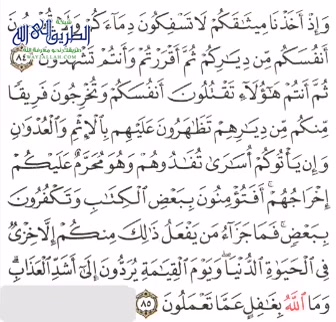 وَإِذْ أَخَذْنَا مِيثَـٰقَكُمْ لَا تَسْفِكُونَ دِمَآءَكُمْ وَلَا تُخْرِجُونَ
أَنفُسَكُم مِّن دِيَـٰرِكُمْ ثُمَّ أَقْرَرْتُمْ وَأَنتُمْ تَشْهَدُونَ ٨٤
ثُمَّ أَنتُمْ هَـٰٓؤُلَآءِ تَقْتُلُونَ أَنفُسَكُمْ وَتُخْرِجُونَ فَرِيقًا
مِّنكُم مِّن دِيَـٰرِهِمْ تَظَـٰهَرُونَ عَلَيْهِم بِٱلْإِثْمِ وَٱلْعُدْوَٰنِ
وَإِن يَأْتُوكُمْ أُسَـٰرَىٰ تُفَـٰدُوهُمْ وَهُوَ مُحَرَّمٌ عَلَيْكُمْ
إِخْرَاجُهُمْ ۚ أَفَتُؤْمِنُونَ بِبَعْضِ ٱلْكِتَـٰبِ وَتَكْفُرُونَ
بِبَعْضٍ ۚ فَمَا جَزَآءُ مَن يَفْعَلُ ذَٰلِكَ مِنكُمْ إِلَّا خِزْىٌ
فِى ٱلْحَيَوٰةِ ٱلدُّنْيَا ۖ وَيَوْمَ ٱلْقِيَـٰمَةِ يُرَدُّونَ إِلَىٰٓ أَشَدِّ ٱلْعَذَابِ ۗ
وَمَا ٱللَّهُ بِغَـٰفِلٍ عَمَّا تَعْمَلُونَ ٨٥
شبكة
الطريق إلى الله